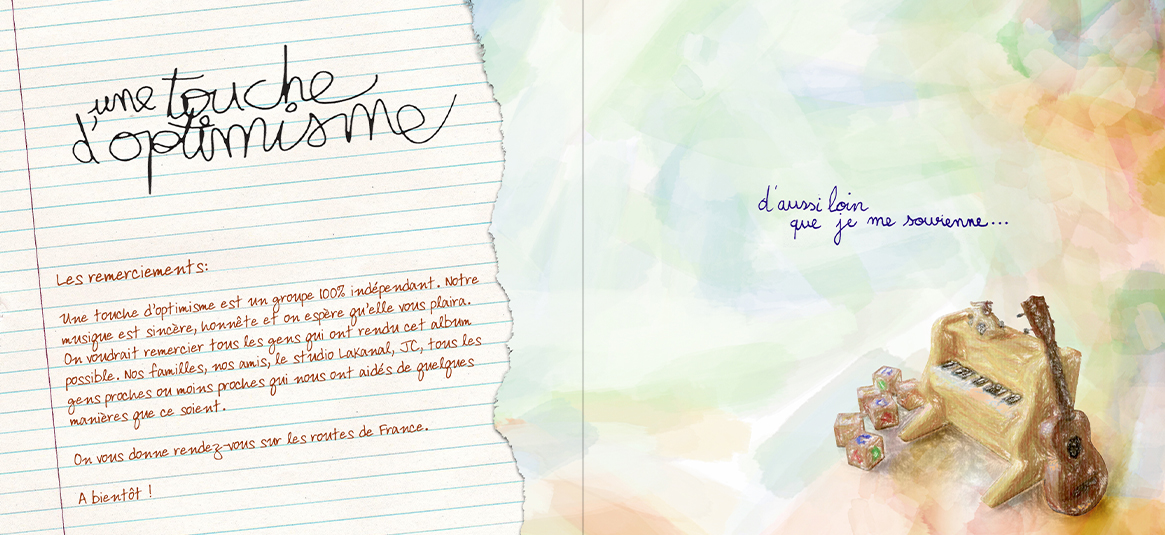 une touche
d'optimisme
Les remerciements:
Une touche d'optimisme est un groupe 100% indépendant. Notre
musique est sincère, honnête et on espère qu'elle vous plaira.
On voudrait remercier tous les gens qui ont rendu cet album
possible. Nos familles, nos amis, le studio Lakanal, JC, tous les
gens proches ou moins proches qui nous ont aidés de quelques
manières que ce soient.
On vous donne rendez-vous sur les routes de France.
A bientôt !
d'aussi loin
que je me souvienne...